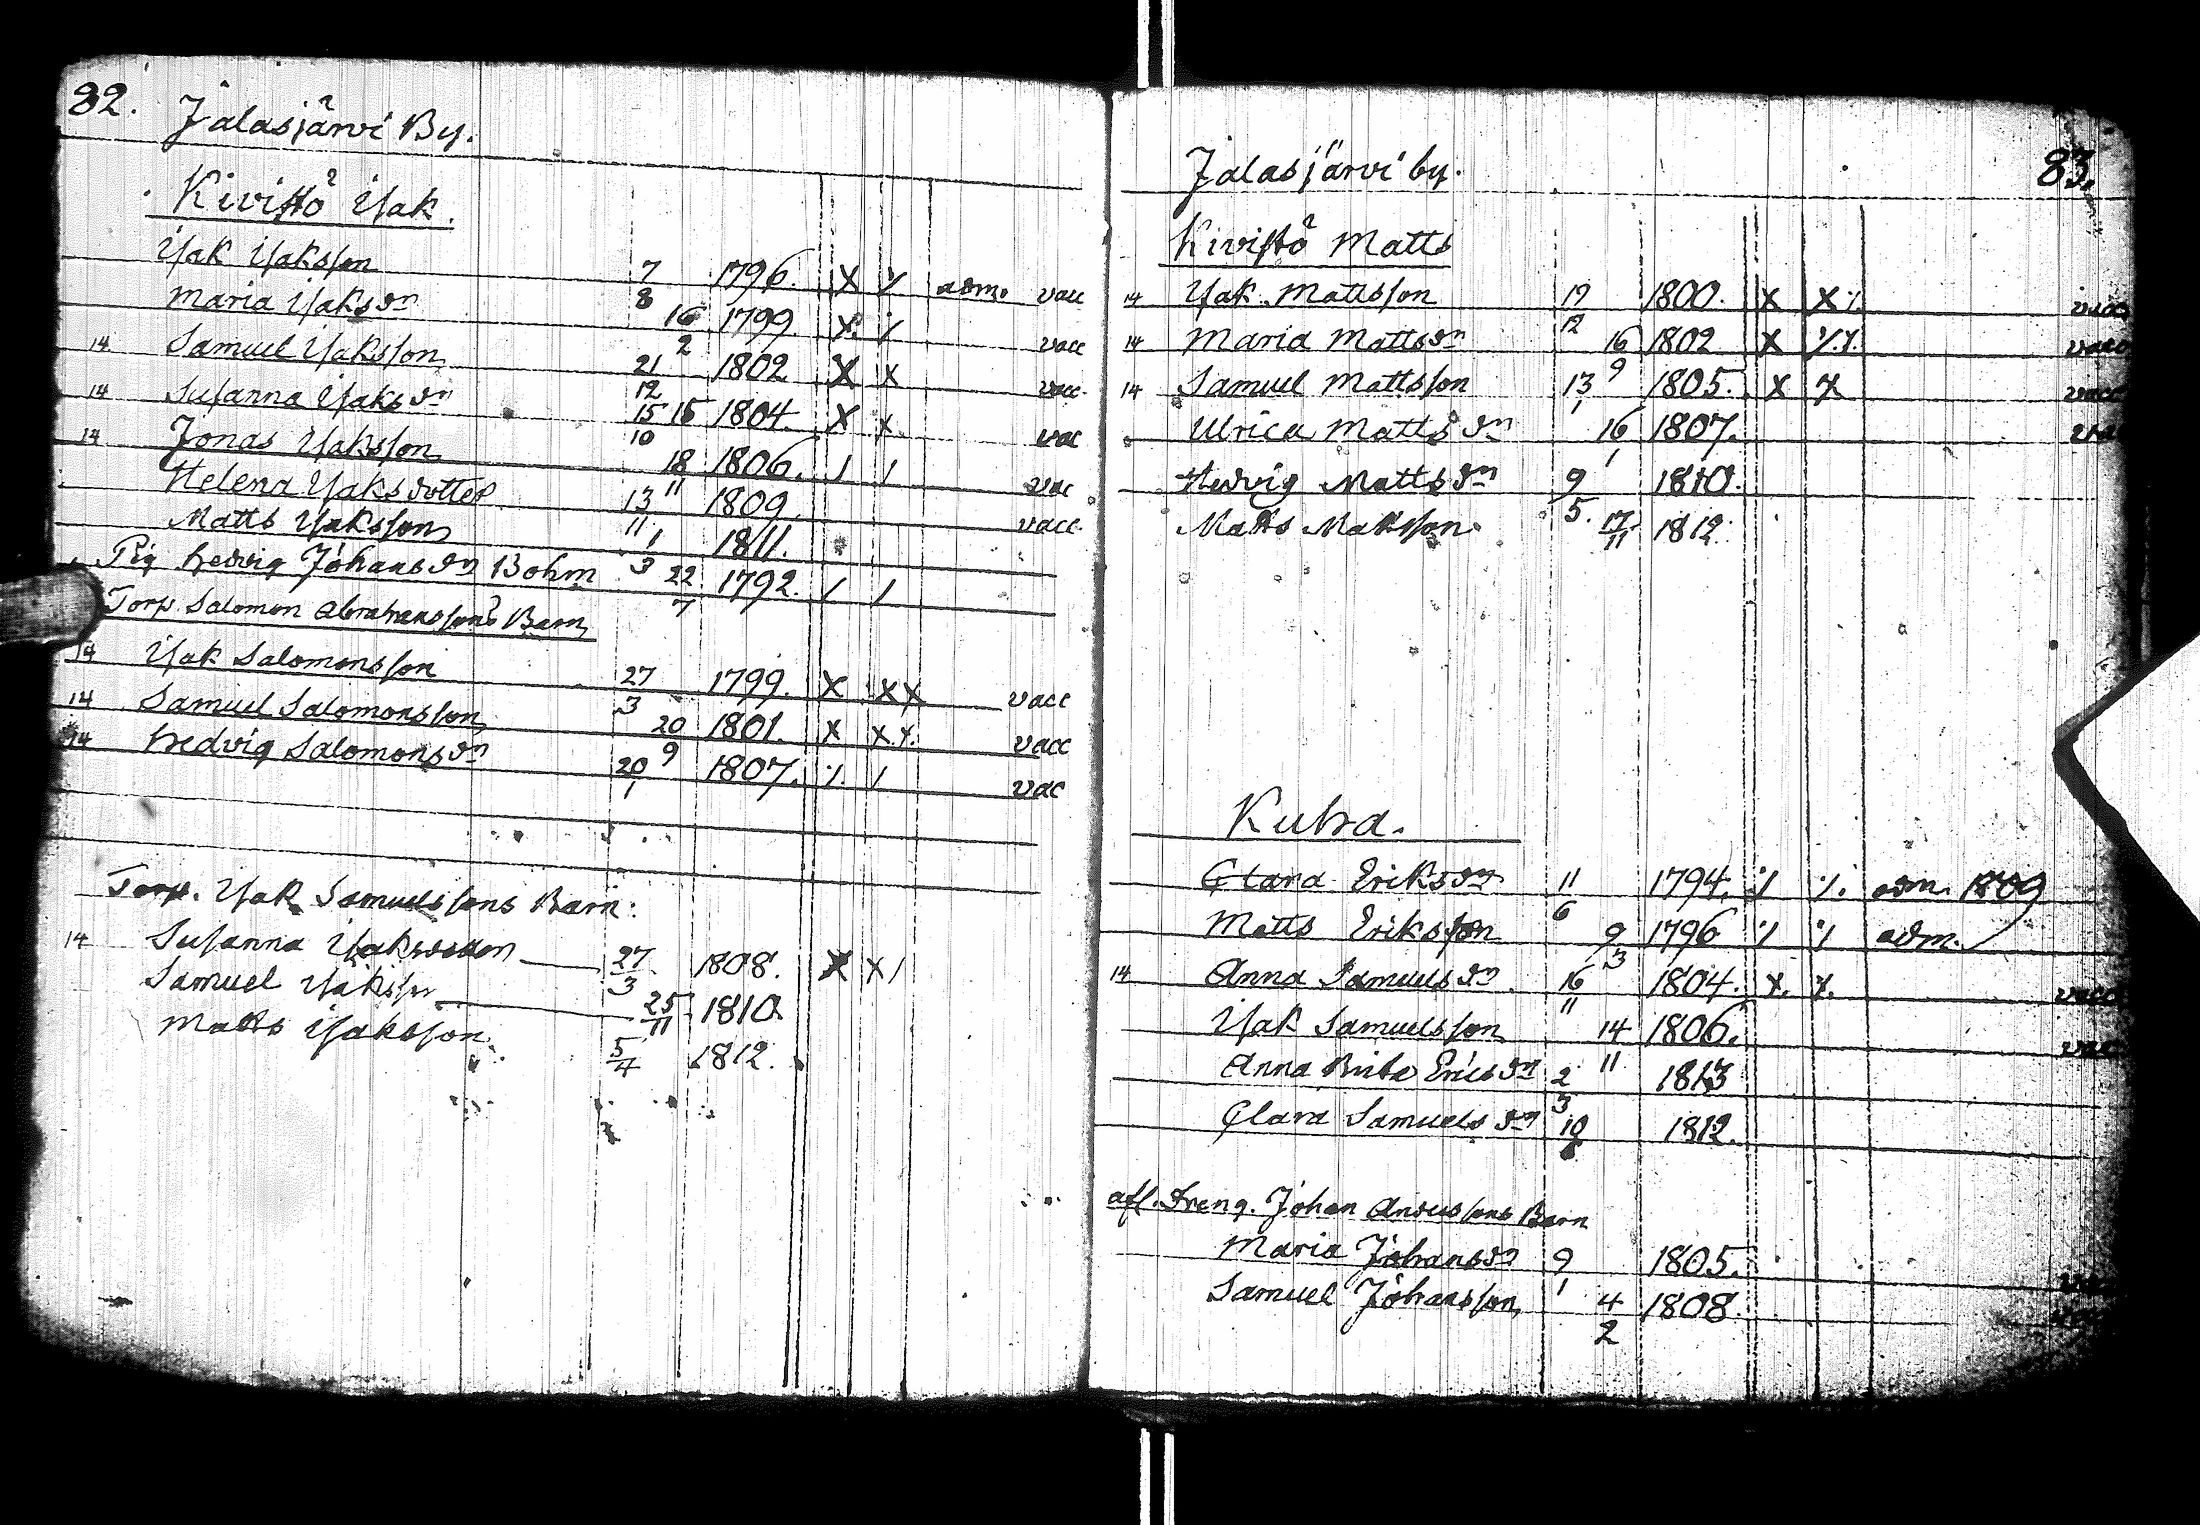 82.
Jalasjärvi By.
Kivistö Isak.
Isak Isaksson 7/8 1796. X ⁒ adm. vacc
Maria Isaksdn 16/2 1799 X. ⁒ vacc
14 Samuel Isaksson 21/12 1802 X X vacc.
14 Susanna Isaksdn 15/10 15 1804. X X. vac
14 Jonas Isaksson 18/11 1806. / / vac
Helena Isaksdotter 13/11 1809. vacc.
Matts Isaksson 1/3 1811.
Pig hedvig Johansdn Bohm 22/7 1792. / /
Torp Salomon Abrahamssons Barn
14 Isak Salomonsson 27/3 1799. X XX vacc
14 Samuel Salomonsson 20/9 1801. X X.⁒. vacc
14 hedvig Salomonsdn 20/1 1807. ⁒. / vac
Torp. Isak Samuelssons Barn:
14 Susanna 27/3 1808. X X/
Samuel Isakss 25/11 1810.
Matts Isaksson. 5/4 1812.
83.
Jalasjärvi by.
Kivistö Matts
14 Isak Mattsson 19/12 1800. X X⁒ vacc
14 Maria Mattsdn 16/9 1802 X ⁒.⁒. vacc
14 Samuel Mattsson 13/1 1805. X X vacc
Ulrica Mattsdn 16/1 1807.
Hedvig Mattsdn 9/5. 1810.
Matts Mattsson. 17/11 1812.
Kuhra.
Clara Eriksdn 11/6 1794. ⁒ ⁒. adm. 1809
Matts Eriksson 9/3 1796 ⁒ ⁒ adm.
14 Anna Samuelsdn 16/11 1804. X. X. vacc
Isak Samuelsson 14/11 1806. vac
Anna Brita Ericsdn 2/3 1813
Clara Samuelsdn 10 1812.
afl. Dreng. Johan Anderssons Barn
Maria Johansdn 9/1 1805.
Samuel Johansson 4/2 1808.